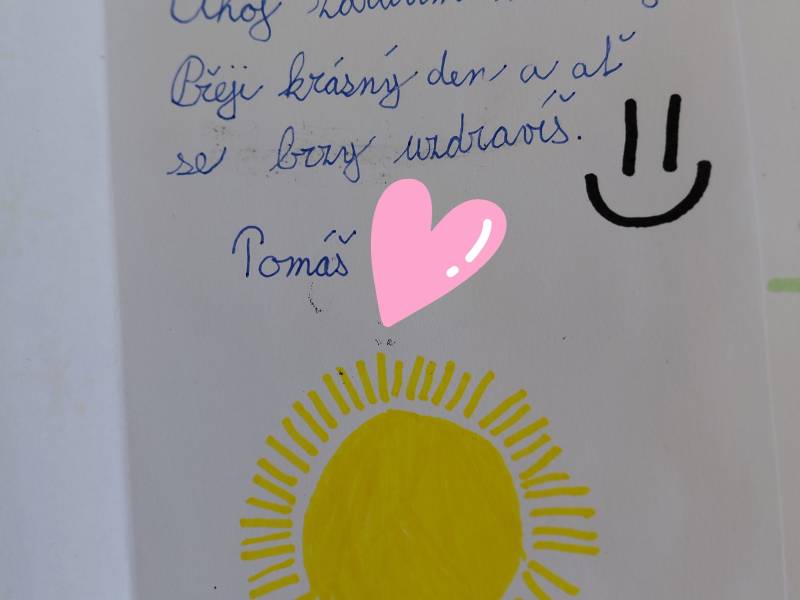 Ahoj
Přeji krásný den a ať
se brzy uzdravíš.
Tomáš